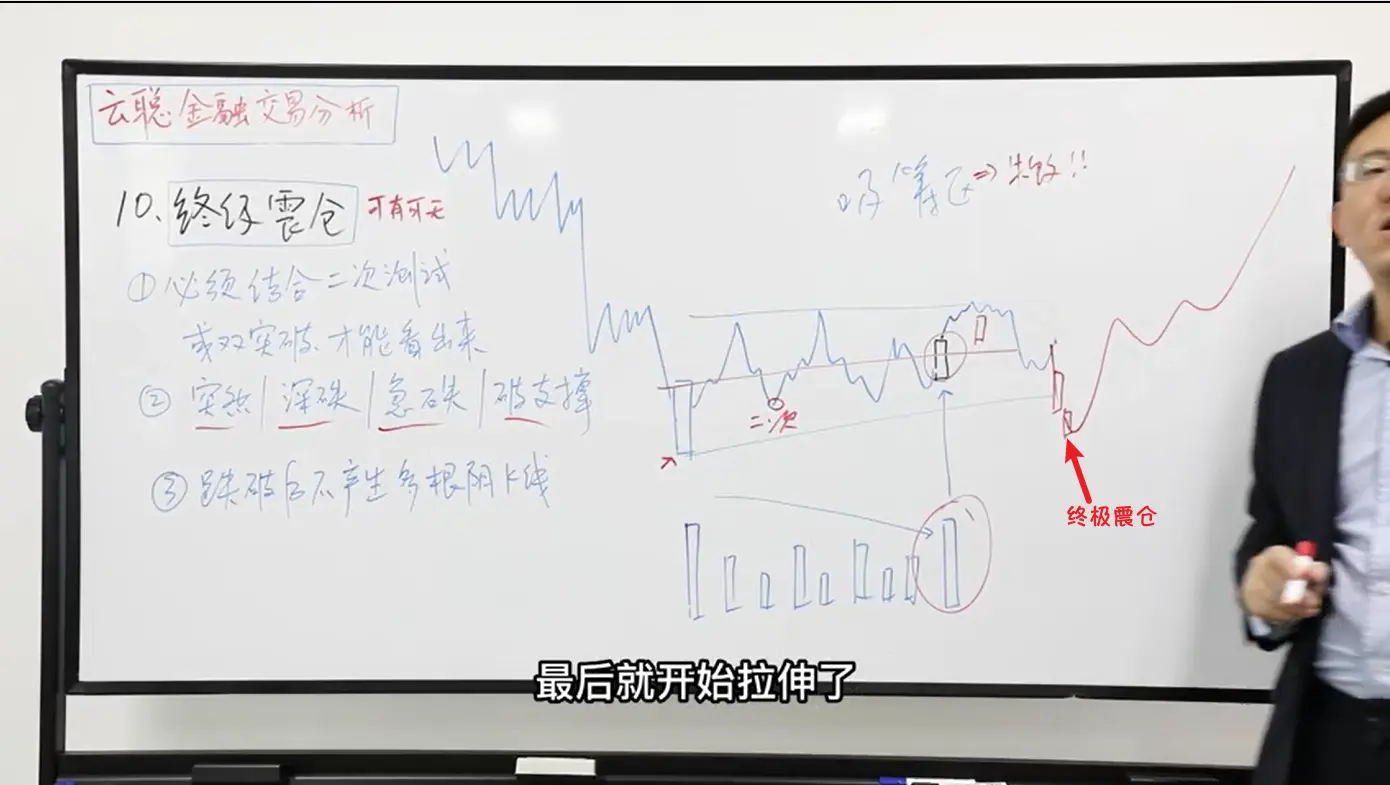 云聪金融交易分析
10. 终极震仓 可有可无
① 必须结合二次测试
或双突破才能看出来
② 突然|深跌|急跌|破支撑
③ 跌破后不产生多根阴K线
吸筹区⇒求救!!
二次
终极震仓
最后就开始拉伸了